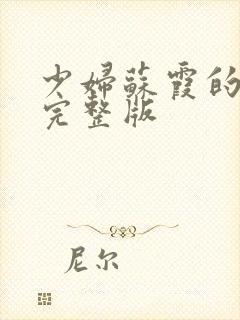 少婦蘇霞的
完整版
尼尔